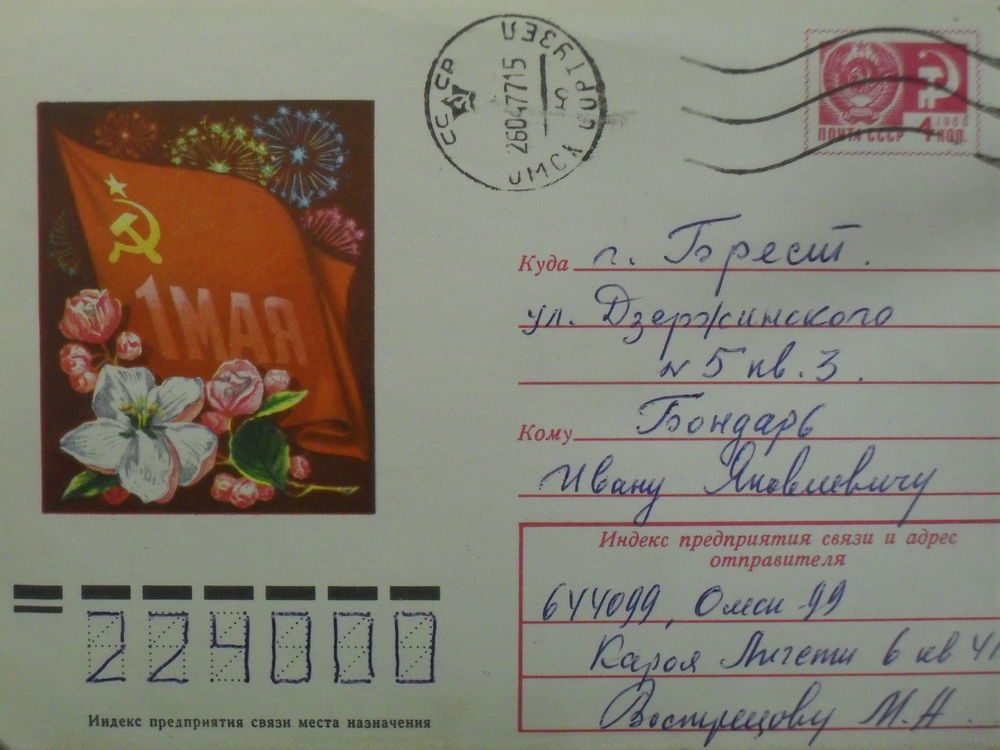 СССР ОМСК ПОЧТУЗЕЛ
26047715
ПОЧТА СССР 4 КОП.
1966
1 МАЯ
Куда г. Брест.
ул. Дзержинского
N 5 кв. 3.
Кому Бондарь
Ивану Яковлевичу
Индекс предприятия связи и адрес
отправителя
644099, Омск-99
Кароя Лигети 6 кв 41
Вострецову М.А.
224000
Индекс предприятия связи места назначения